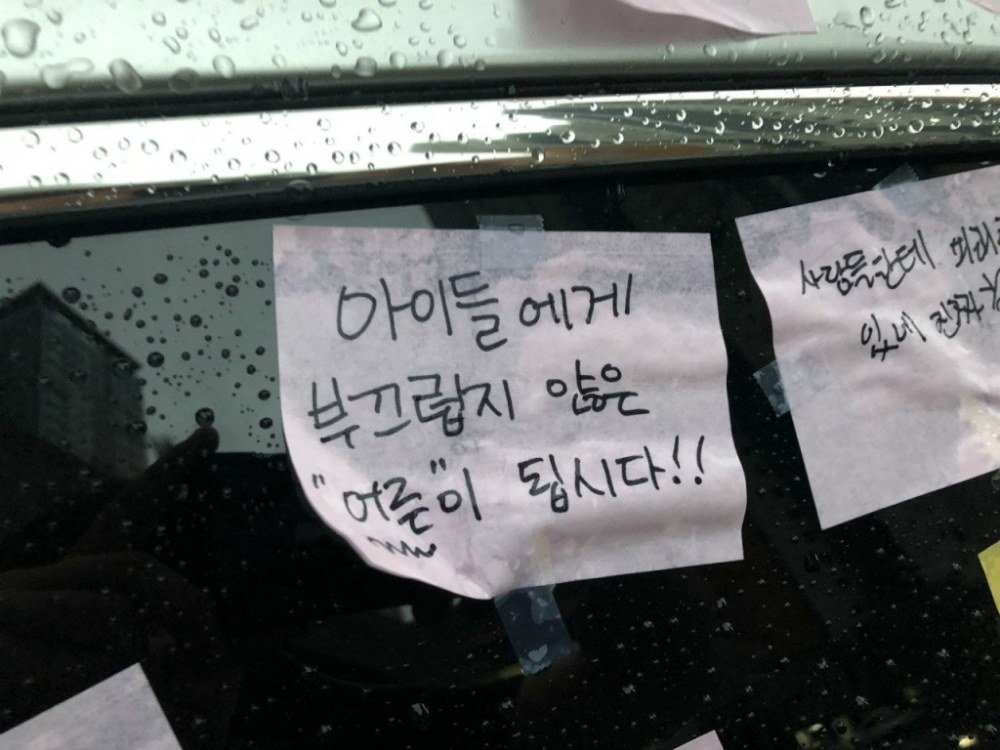 아이들에게
부끄럽지 않은
"어른"이 됩시다!!
사람들한테
있네 진짜